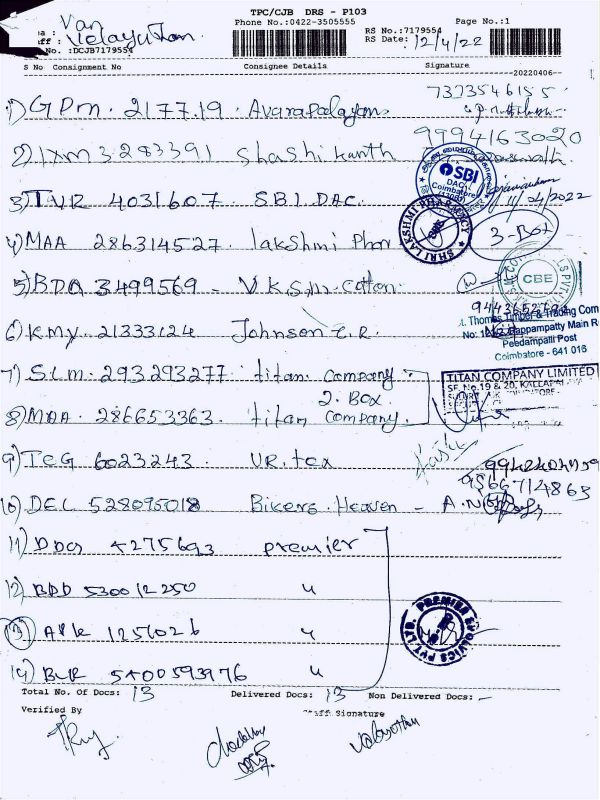 TPC/CJB DRS - P103
Phone No.:0422-3505555 Page No.:1
Van
Velayutham
No.:DCJB7179554 RS No.:7179554
RS Date: 12/4/22
S No Consignment No Consignee Details Signature
20220406
7373546155
1) GPM. 2177.19. Avarapalayam
9994163020
2) IXM 3283391 Shashikanth
SBI
DAC
Coimbatore
3) TVR 4031607 S.B.I DAC.
11/04/2022
SHRI LAKSHMI PHARMACY
4) MAA 286314527. lakshmi Phar 3-Box
5) BDA 3499569 - V K S.M. Cotton.
CBE
St. Thomas Timber & Trading Com
Pappampatty Main R
Peedampalli Post
Coimbatore - 641 016
6) KMY. 21333124 Johnson E.R.
7) SLM. 293293277 titan. Company
2. Box
TITAN COMPANY LIMITED
SF. No.19 & 20, KALLAPA
8) MAA. 286653363. titan Company.
9) TEG 6023243. VR. tex
9566714863
10) DEL 528095018 Bikers Heaven -
11) 4275693 Premier
12) BDD 530012250 "
13) 1256026 "
PREMIER EVOLVICS PVT LTD.
14) BLR 5400593976 "
Total No. Of Docs: 13 Delivered Docs: 13 Non Delivered Docs: -
Verified By Staff Signature